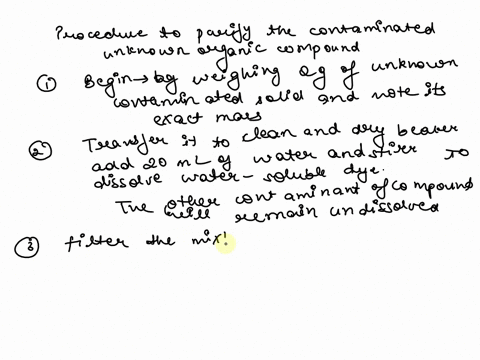 Procedure to purify the contaminated
unknown organic compound
① Begin → by weighing 2g of unknown
contaminated solid and note its
exact mass
② Transfer it to clean and dry beaver
add 20 mL of water and stirr to
dissolve water-soluble dye.
The other contaminant of compound
will remain undissolved
③ filter the mix